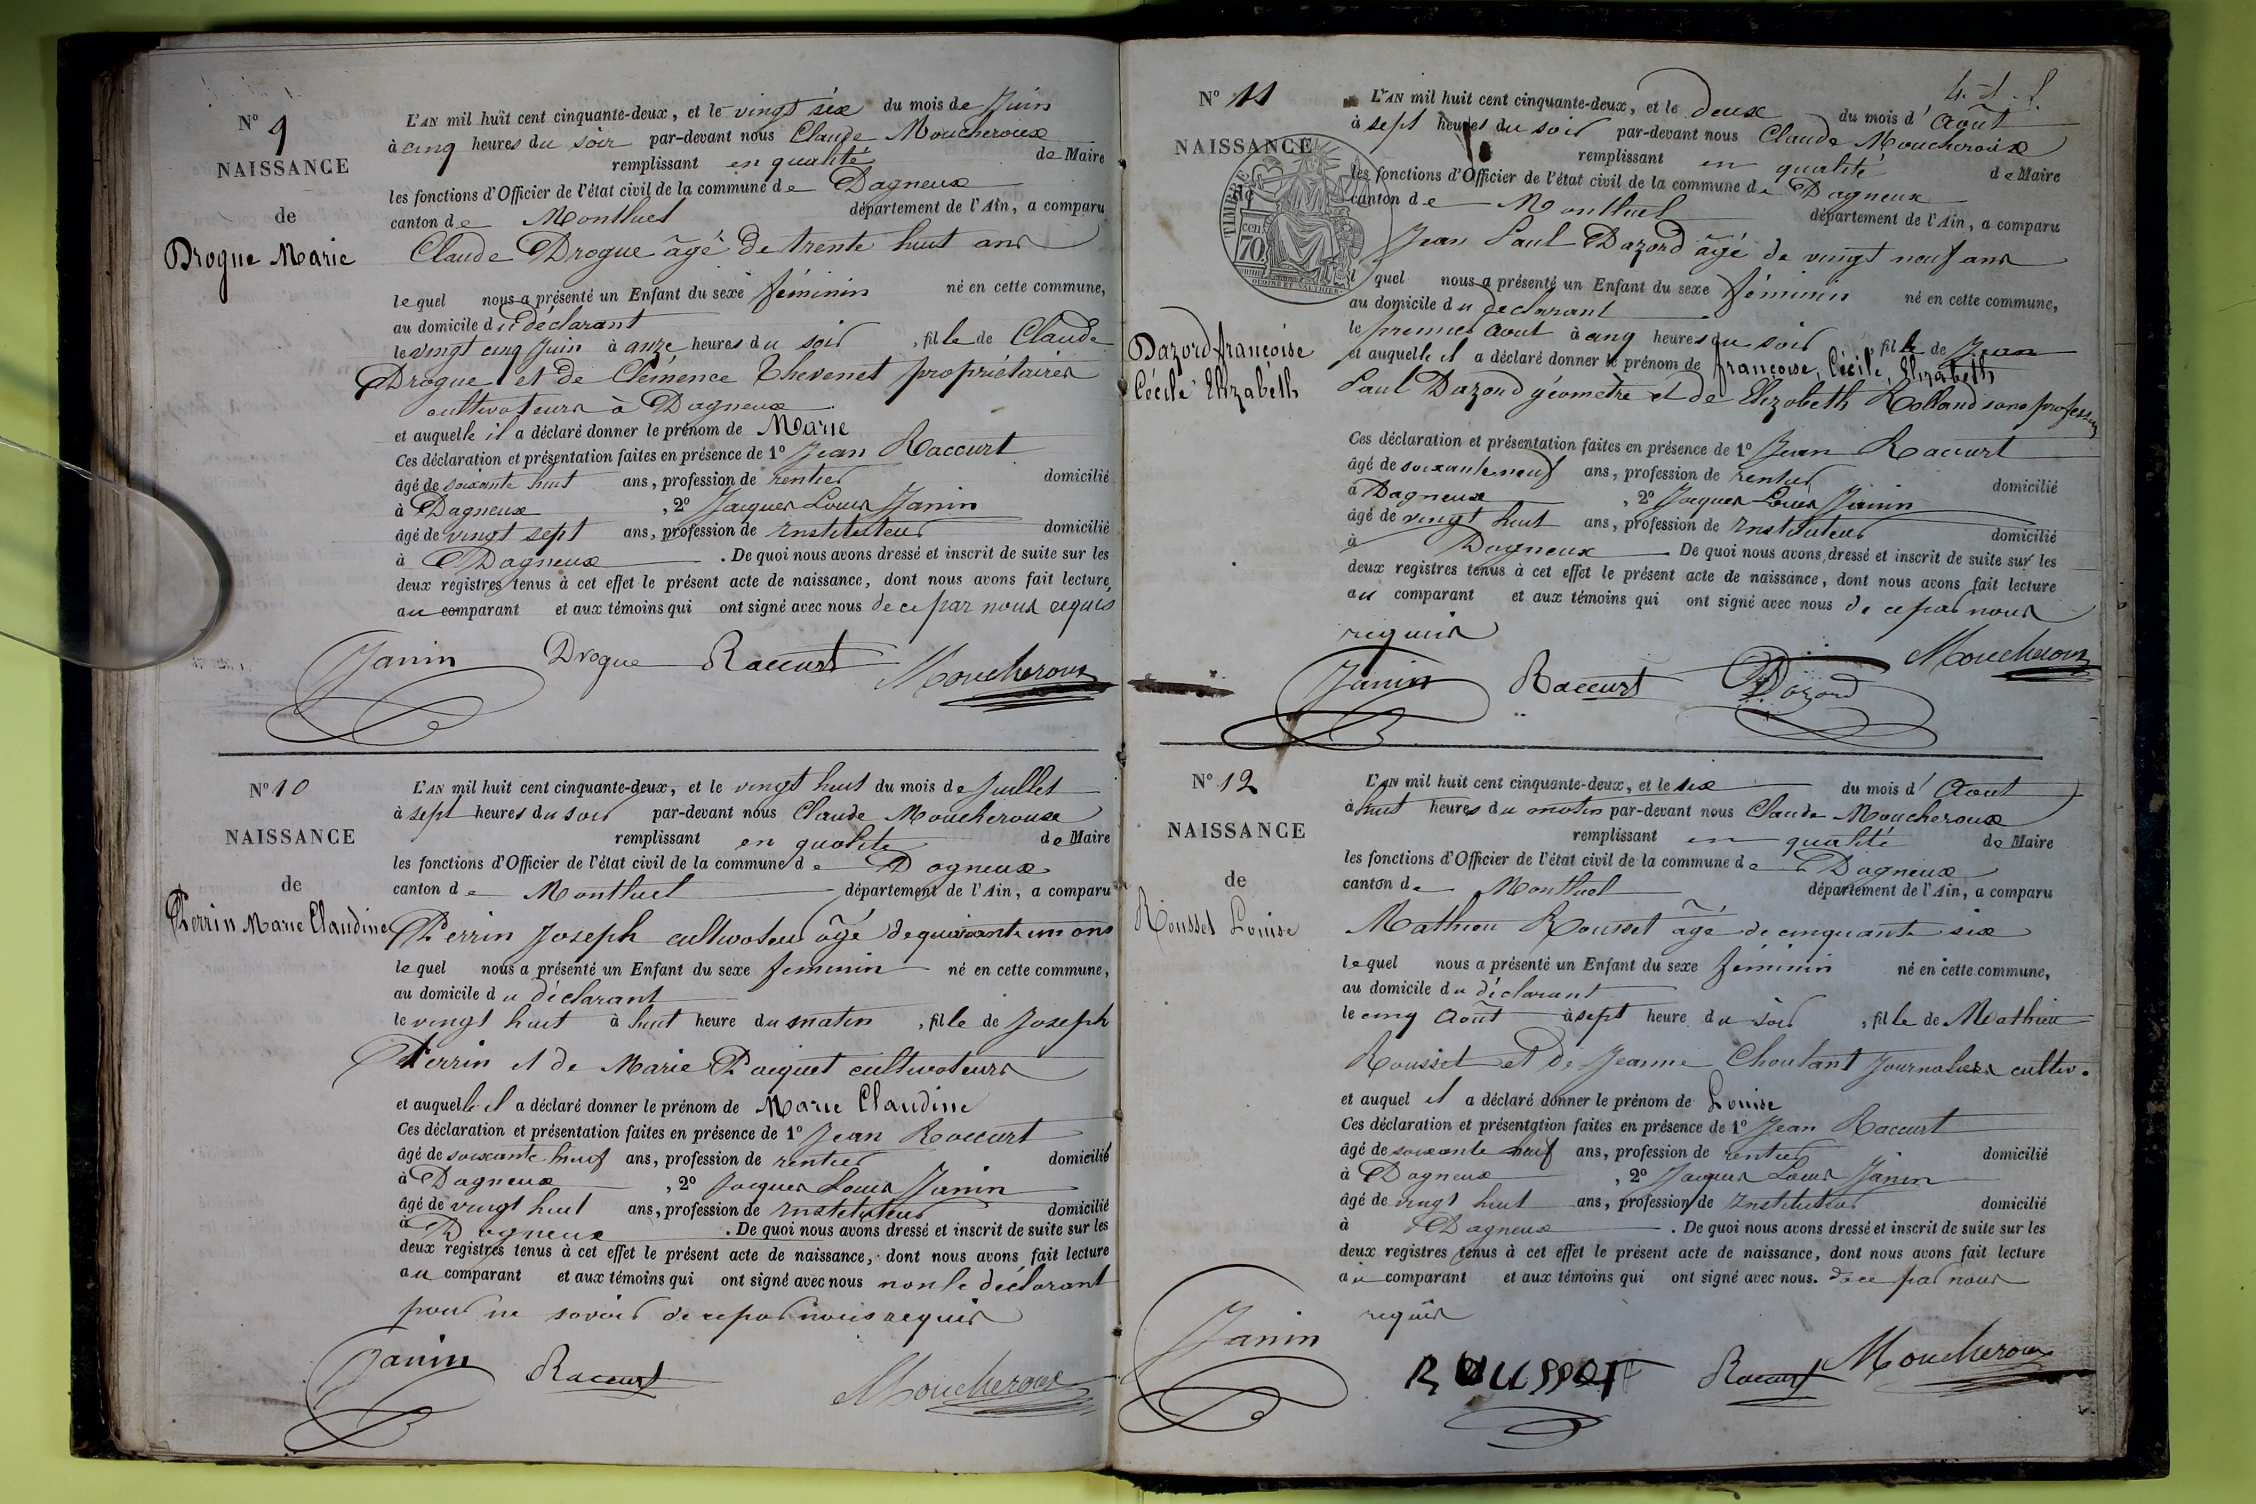 N° 9
NAISSANCE
de
Drogue Marie
L'AN mil huit cent cinquante-deux, et le vingt six du mois de Juin
à cinq heures du soir par-devant nous Claude Moucheroux
remplissant en qualité de Maire
les fonctions d'Officier de l'état civil de la commune de Dagneux
canton de Montluel département de l'Ain, a comparu
Claude Drogue âgé de trente huit ans
lequel nous a présenté un Enfant du sexe féminin né en cette commune,
au domicile du déclarant
le vingt cinq Juin à onze heures du soir, fille de Claude
Drogue et de Clémence Thevenet propriétaires
cultivateurs à Dagneux
et auquelle il a déclaré donner le prénom de Marie
Ces déclaration et présentation faites en présence de 1° Jean Raccurt
âgé de soixante huit ans, profession de rentier domicilié
à Dagneux, 2° Jacques Louis Janin
âgé de vingt sept ans, profession de Instituteur domicilié
à Dagneux. De quoi nous avons dressé et inscrit de suite sur les
deux registres tenus à cet effet le présent acte de naissance, dont nous avons fait lecture
au comparant et aux témoins qui ont signé avec nous de ce par nous requis
Janin Drogue Raccurt Moucheroux
N° 10
NAISSANCE
de
Perrin Marie Claudine
L'AN mil huit cent cinquante-deux, et le vingt huit du mois de Juillet
à sept heures du soir par-devant nous Claude Moucheroux
remplissant en qualité de Maire
les fonctions d'Officier de l'état civil de la commune de Dagneux
canton de Montluel département de l'Ain, a comparu
Perrin Joseph cultivateur âgé de quarante un ans
lequel nous a présenté un Enfant du sexe féminin né en cette commune,
au domicile du déclarant
le vingt huit à huit heure du matin, fille de Joseph
Perrin et de Marie Paiquet cultivateurs
et auquelle il a déclaré donner le prénom de Marie Claudine
Ces déclaration et présentation faites en présence de 1° Jean Raccurt
âgé de soixante huit ans, profession de rentier domicilié
à Dagneux, 2° Jacques Louis Janin
âgé de vingt huit ans, profession de Instituteur domicilié
à Dagneux. De quoi nous avons dressé et inscrit de suite sur les
deux registres tenus à cet effet le présent acte de naissance, dont nous avons fait lecture
au comparant et aux témoins qui ont signé avec nous non le déclarant
pour ne savoir de ce par nous requis
Janin Raccurt Moucheroux
N° 11
NAISSANCE
de
TIMBRE
70 cen
Dazord françoise
Cécile Elizabéth
L'AN mil huit cent cinquante-deux, et le deux du mois d'Août
à sept heures du soir par-devant nous Claude Moucheroux
remplissant en qualité de Maire
les fonctions d'Officier de l'état civil de la commune de Dagneux
canton de Montluel département de l'Ain, a comparu
Jean Paul Dazord âgé de vingt neuf ans
lquel nous a présenté un Enfant du sexe féminin né en cette commune,
au domicile du déclarant
le premier Aout à cinq heures du soir, fille de Jean
et auquelle il a déclaré donner le prénom de françoise, Cécile, Elizabéth
Paul Dazord géomètre et de Elizabeth Rolland sans profession
Ces déclaration et présentation faites en présence de 1° Jean Raccurt
âgé de soixante neuf ans, profession de rentier domicilié
à Dagneux, 2° Jacques Louis Janin
âgé de vingt huit ans, profession de Instituteur domicilié
à Dagneux. De quoi nous avons dressé et inscrit de suite sur les
deux registres tenus à cet effet le présent acte de naissance, dont nous avons fait lecture
au comparant et aux témoins qui ont signé avec nous de ce par nous
requis
Moucheroux
Janin Raccurt Dazord
N° 12
NAISSANCE
de
Rousset Louise
L'AN mil huit cent cinquante-deux, et le six du mois d'Aout
à huit heures du matin par-devant nous Claude Moucheroux
remplissant en qualité de Maire
les fonctions d'Officier de l'état civil de la commune de Dagneux
canton de Montluel département de l'Ain, a comparu
Mathieu Rousset âgé de cinquante six
lequel nous a présenté un Enfant du sexe féminin né en cette commune,
au domicile du déclarant
le cinq Août à sept heure du soir, fille de Mathieu
Rousset et de Jeanne Choulant Journaliers cultiv.
et auquel il a déclaré donner le prénom de Louise
Ces déclaration et présentation faites en présence de 1° Jean Raccurt
âgé de soixante neuf ans, profession de rentier domicilié
à Dagneux, 2° Jacques Louis Janin
âgé de vingt huit ans, profession de Instituteur domicilié
à Dagneux. De quoi nous avons dressé et inscrit de suite sur les
deux registres tenus à cet effet le présent acte de naissance, dont nous avons fait lecture
au comparant et aux témoins qui ont signé avec nous. de ce par nous
requis
Janin Rousset Raccurt Moucheroux